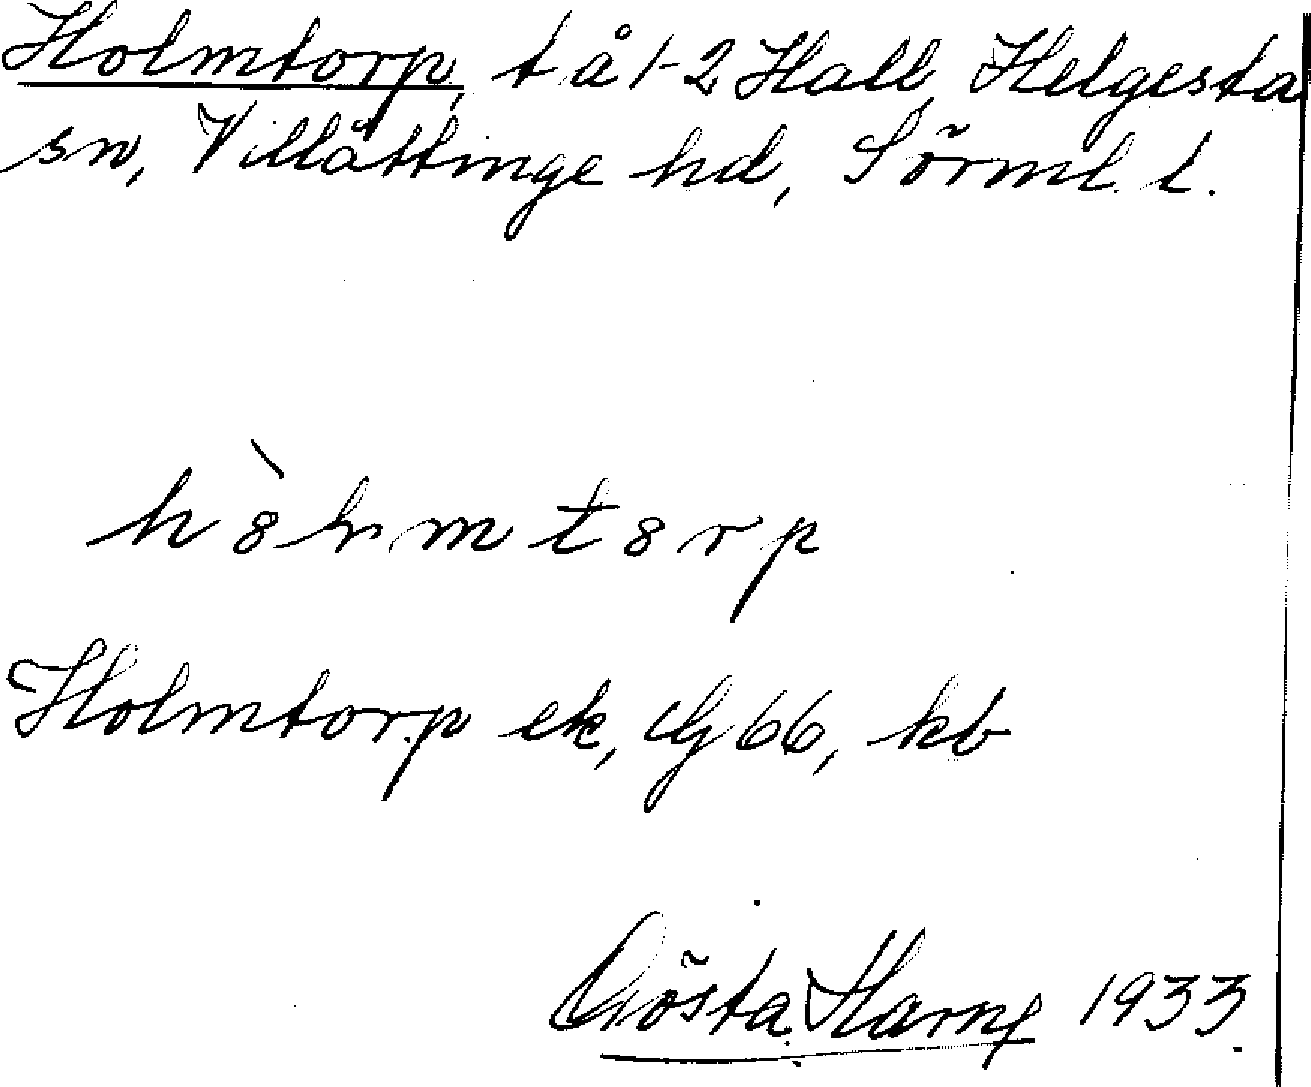 Holmtorp, t å 1-2 Hall, Helgesta
sn, Villåttinge hd, Sörml. l.
h 8̀ h m t 8 r p
Holmtorp ek, G 66, kb
Gösta Harne 1933.